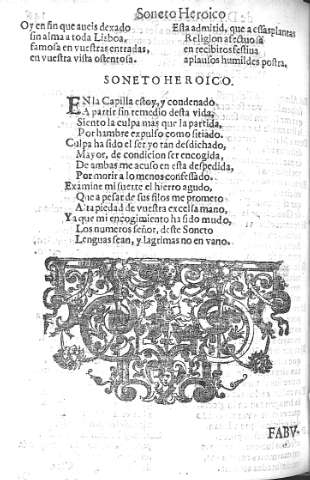 Soneto Heroico
Oy en fin que aueis dexado
sin alma a toda Lisboa,
famosa en vuestras entradas,
en vuestra vista ostentosa.
Esta admitid, que a essas plantas
Religion afectuosa
en recibiros festiua
aplausos humildes postra,
SONETO HEROICO.
EN la Capilla estoy, y condenado
A partir sin remedio desta vida,
Siento la culpa mas que la partida,
Por hambre expulso como sitiado.
Culpa ha sido el ser yo tan desdichado,
Mayor, de condicion ser encogida,
De ambas me acuso en esta despedida,
Por morir a lo menos confessado.
Examine mi suerte el hierro agudo,
Que a pesar de sus filos me prometo
Alta piedad de vuestra excelsa mano,
Ya que mi encogimiento ha sido mudo,
Los numeros señor, deste Soneto
Lenguas sean, y lagrimas no en vano.
FABV-